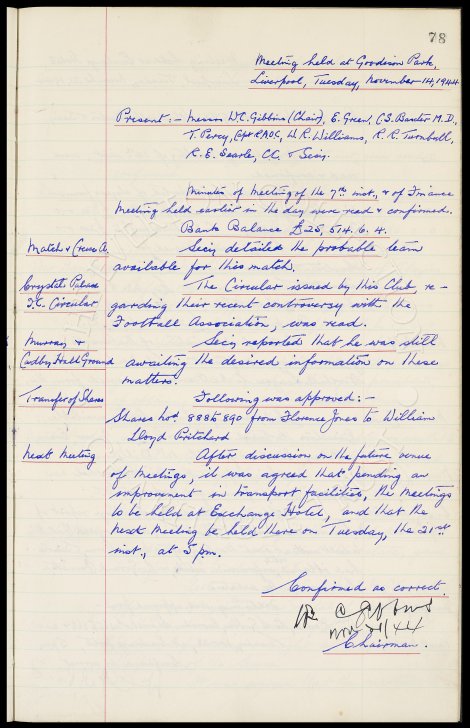 78
Meeting held at Goodison Park,
Liverpool, Tuesday, November 14, 1944
Present:- Messrs W.C. Gibbins (Chair), E. Green, C.S. Baxter M.D.
T. Percy, Capt R.A.O.C, W.R. Williams, R.R. Turnbull,
R.E. Searle, C.C. & Secy.
Minutes of Meeting of the 7th inst., & of Finance
Meeting held earlier in the day were read & confirmed.
Bank Balance £25,514.6.4.
Match v Crewe A. Secy detailed the probable team
available for this match.
Crystal Palace The Circular issued by this Club, re-
F.C. Circular garding their recent controversy with the
Football Association, was read.
Murray & Secy reported that he was still
Cadby Hall Ground awaiting the desired information on these
matters.
Transfer of Shares Following was approved:-
Shares nos. 888 to 890 from Florence Jones to William
Lloyd Pritchard
Next Meeting After discussion on the future venue
of Meetings, it was agreed that pending an
improvement in transport facilities, the meetings
to be held at Exchange Hotel, and that the
next Meeting be held there on Tuesday, the 21st
inst., at 5 pm.
Confirmed as correct.
W C Gibbins
Nov 21/44
Chairman.